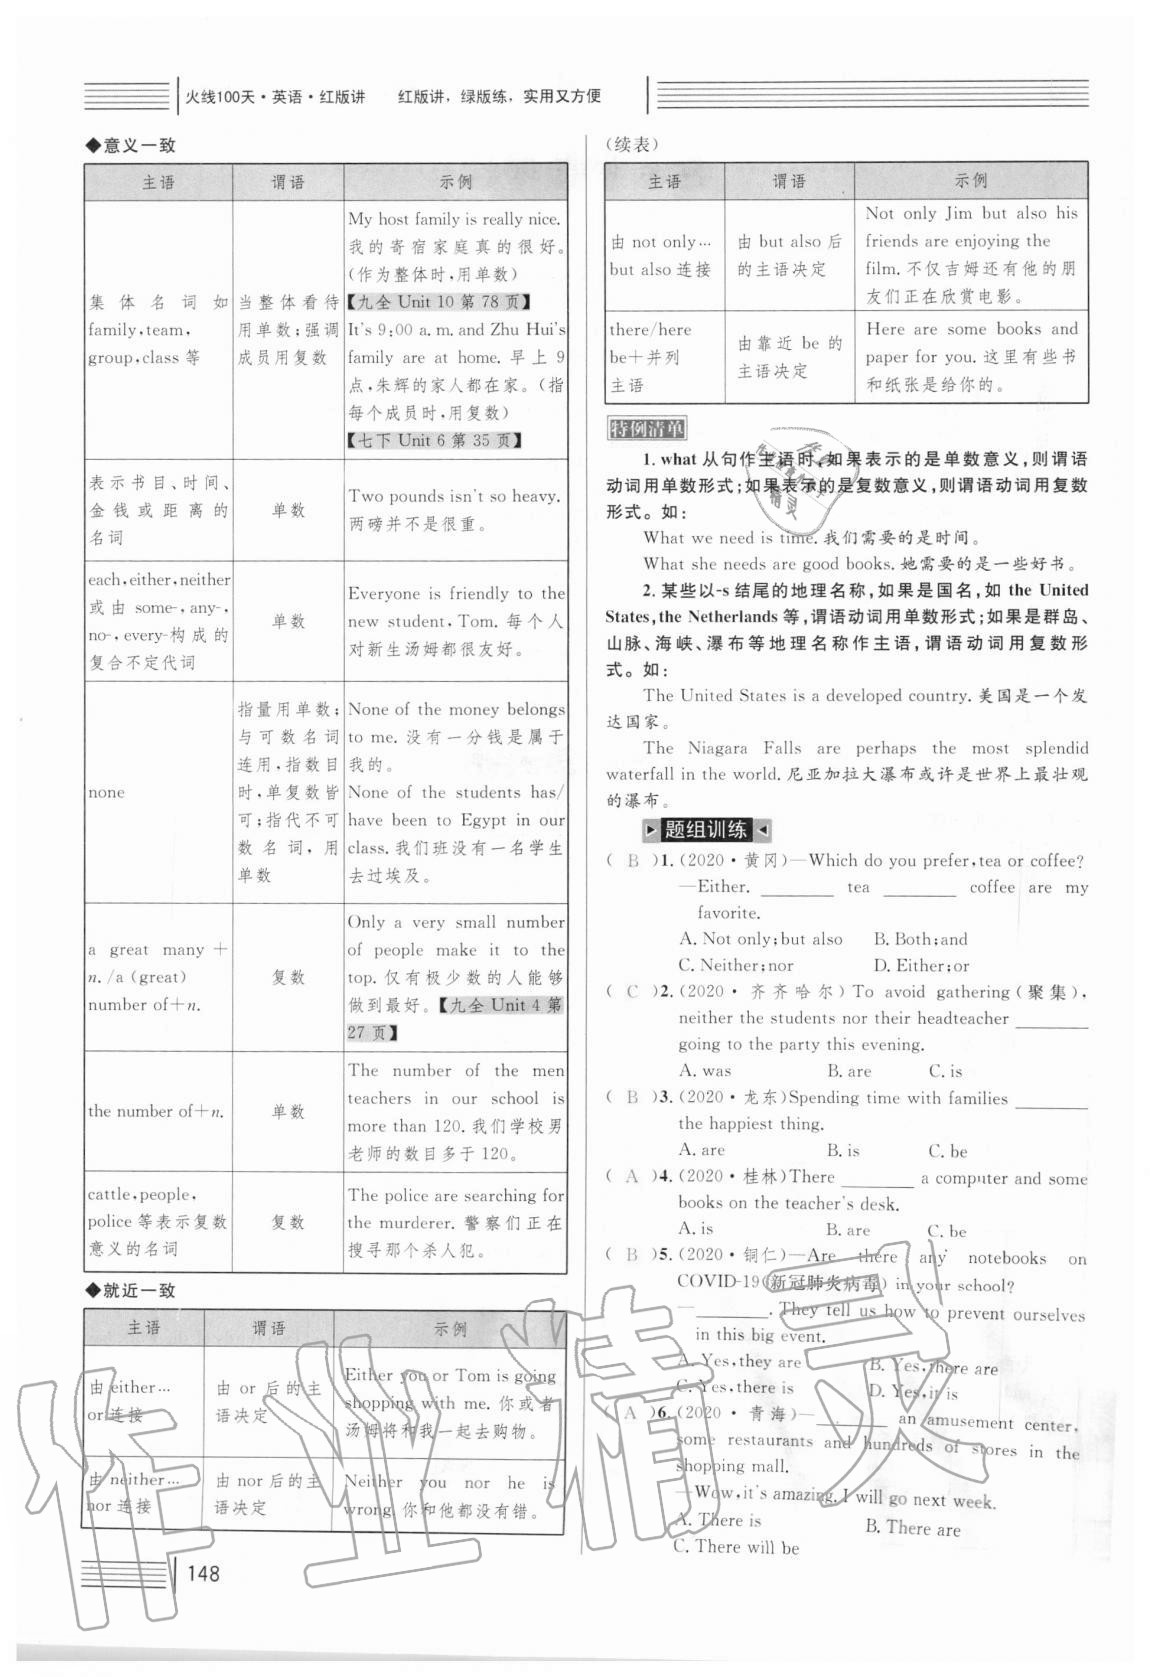 火线100天·英语·红版讲 红版讲,绿版练,实用又方便
◆意义一致
主语 谓语 示例
集体名词如
family,team,
group,class 等
当整体看待
用单数;强调
成员用复数
My host family is really nice.
我的寄宿家庭真的很好。
(作为整体时,用单数)
【九全 Unit 10 第 78 页】
It's 9:00 a. m. and Zhu Hui's
family are at home. 早上 9
点,朱辉的家人都在家。(指
每个成员时,用复数)
【七下 Unit 6 第 35 页】
表示书目、时间、
金钱或距离的
名词
单数
Two pounds isn't so heavy.
两磅并不是很重。
each,either,neither
或由 some-, any-,
no-, every-构成的
复合不定代词
单数
Everyone is friendly to the
new student, Tom. 每个人
对新生汤姆都很友好。
none
指量用单数;
与可数名词
连用,指数目
时,单复数皆
可;指代不可
数名词,用
单数
None of the money belongs
to me. 没有一分钱是属于
我的。
None of the students has/
have been to Egypt in our
class. 我们班没有一名学生
去过埃及。
a great many +
n. /a (great)
number of+n.
复数
Only a very small number
of people make it to the
top. 仅有极少数的人能够
做到最好。【九全 Unit 4 第
27 页】
the number of+n.
单数
The number of the men
teachers in our school is
more than 120. 我们学校男
老师的数目多于 120。
cattle,people,
police 等表示复数
意义的名词
复数
The police are searching for
the murderer. 警察们正在
搜寻那个杀人犯。
◆就近一致
主语 谓语 示例
由 either…
or 连接
由 or 后的主
语决定
Either you or Tom is going
shopping with me. 你或者
汤姆将和我一起去购物。
由 neither…
nor 连接
由 nor 后的主
语决定
Neither you nor he is
wrong. 你和他都没有错。
148
(续表)
主语 谓语 示例
由 not only…
but also 连接
由 but also 后
的主语决定
Not only Jim but also his
friends are enjoying the
film. 不仅吉姆还有他的朋
友们正在欣赏电影。
there/here
be+并列
主语
由靠近 be 的
主语决定
Here are some books and
paper for you. 这里有些书
和纸张是给你的。
特例清单
1. what 从句作主语时,如果表示的是单数意义,则谓语
动词用单数形式;如果表示的是复数意义,则谓语动词用复数
形式。如:
What we need is time. 我们需要的是时间。
What she needs are good books. 她需要的是一些好书。
2. 某些以-s 结尾的地理名称,如果是国名,如 the United
States,the Netherlands 等,谓语动词用单数形式;如果是群岛、
山脉、海峡、瀑布等地理名称作主语,谓语动词用复数形
式。如:
The United States is a developed country. 美国是一个发
达国家。
The Niagara Falls are perhaps the most splendid
waterfall in the world. 尼亚加拉大瀑布或许是世界上最壮观
的瀑布。
题组训练
( B )1. (2020·黄冈)—Which do you prefer,tea or coffee?
—Either. ________ tea ________ coffee are my
favorite.
A. Not only;but also B. Both;and
C. Neither;nor D. Either;or
( C )2. (2020·齐齐哈尔) To avoid gathering (聚集),
neither the students nor their headteacher ________
going to the party this evening.
A. was B. are C. is
( B )3. (2020·龙东)Spending time with families ________
the happiest thing.
A. are B. is C. be
( A )4. (2020·桂林)There ________ a computer and some
books on the teacher's desk.
A. is B. are C. be
( B )5. (2020·铜仁)—Are there any notebooks on
COVID-19(新冠肺炎病毒) in your school?
—________. They tell us how to prevent ourselves
in this big event.
A. Yes,they are B. Yes,there are
C. Yes,there is D. Yes,it is
( A )6. (2020·青海)—________ an amusement center,
some restaurants and hundreds of stores in the
shopping mall.
—Wow,it's amazing. I will go next week.
A. There is B. There are
C. There will be
作业精灵